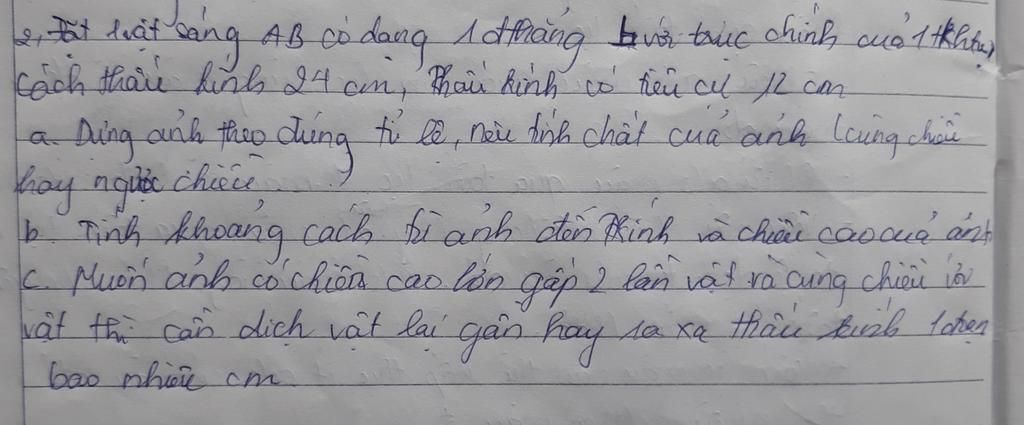 2, Đặt vật sáng AB có dạng 1 đthẳng ⊥ với trục chính của 1 tkhtụ,
Cách thấu kính 24 cm, Thấu kính có tiêu cự 12 cm
a. Dựng ảnh theo đúng tỉ lệ, nêu tính chất của ảnh (cùng chiều
hay ngược chiều
b. Tính khoảng cách từ ảnh đến Tkính và chiều cao của ảnh
c. Muốn ảnh có chiều cao lớn gấp 2 lần vật và cùng chiều với
vật thì cần dịch vật lại gần hay ra xa thấu kính 1 đoạn
bao nhiêu cm